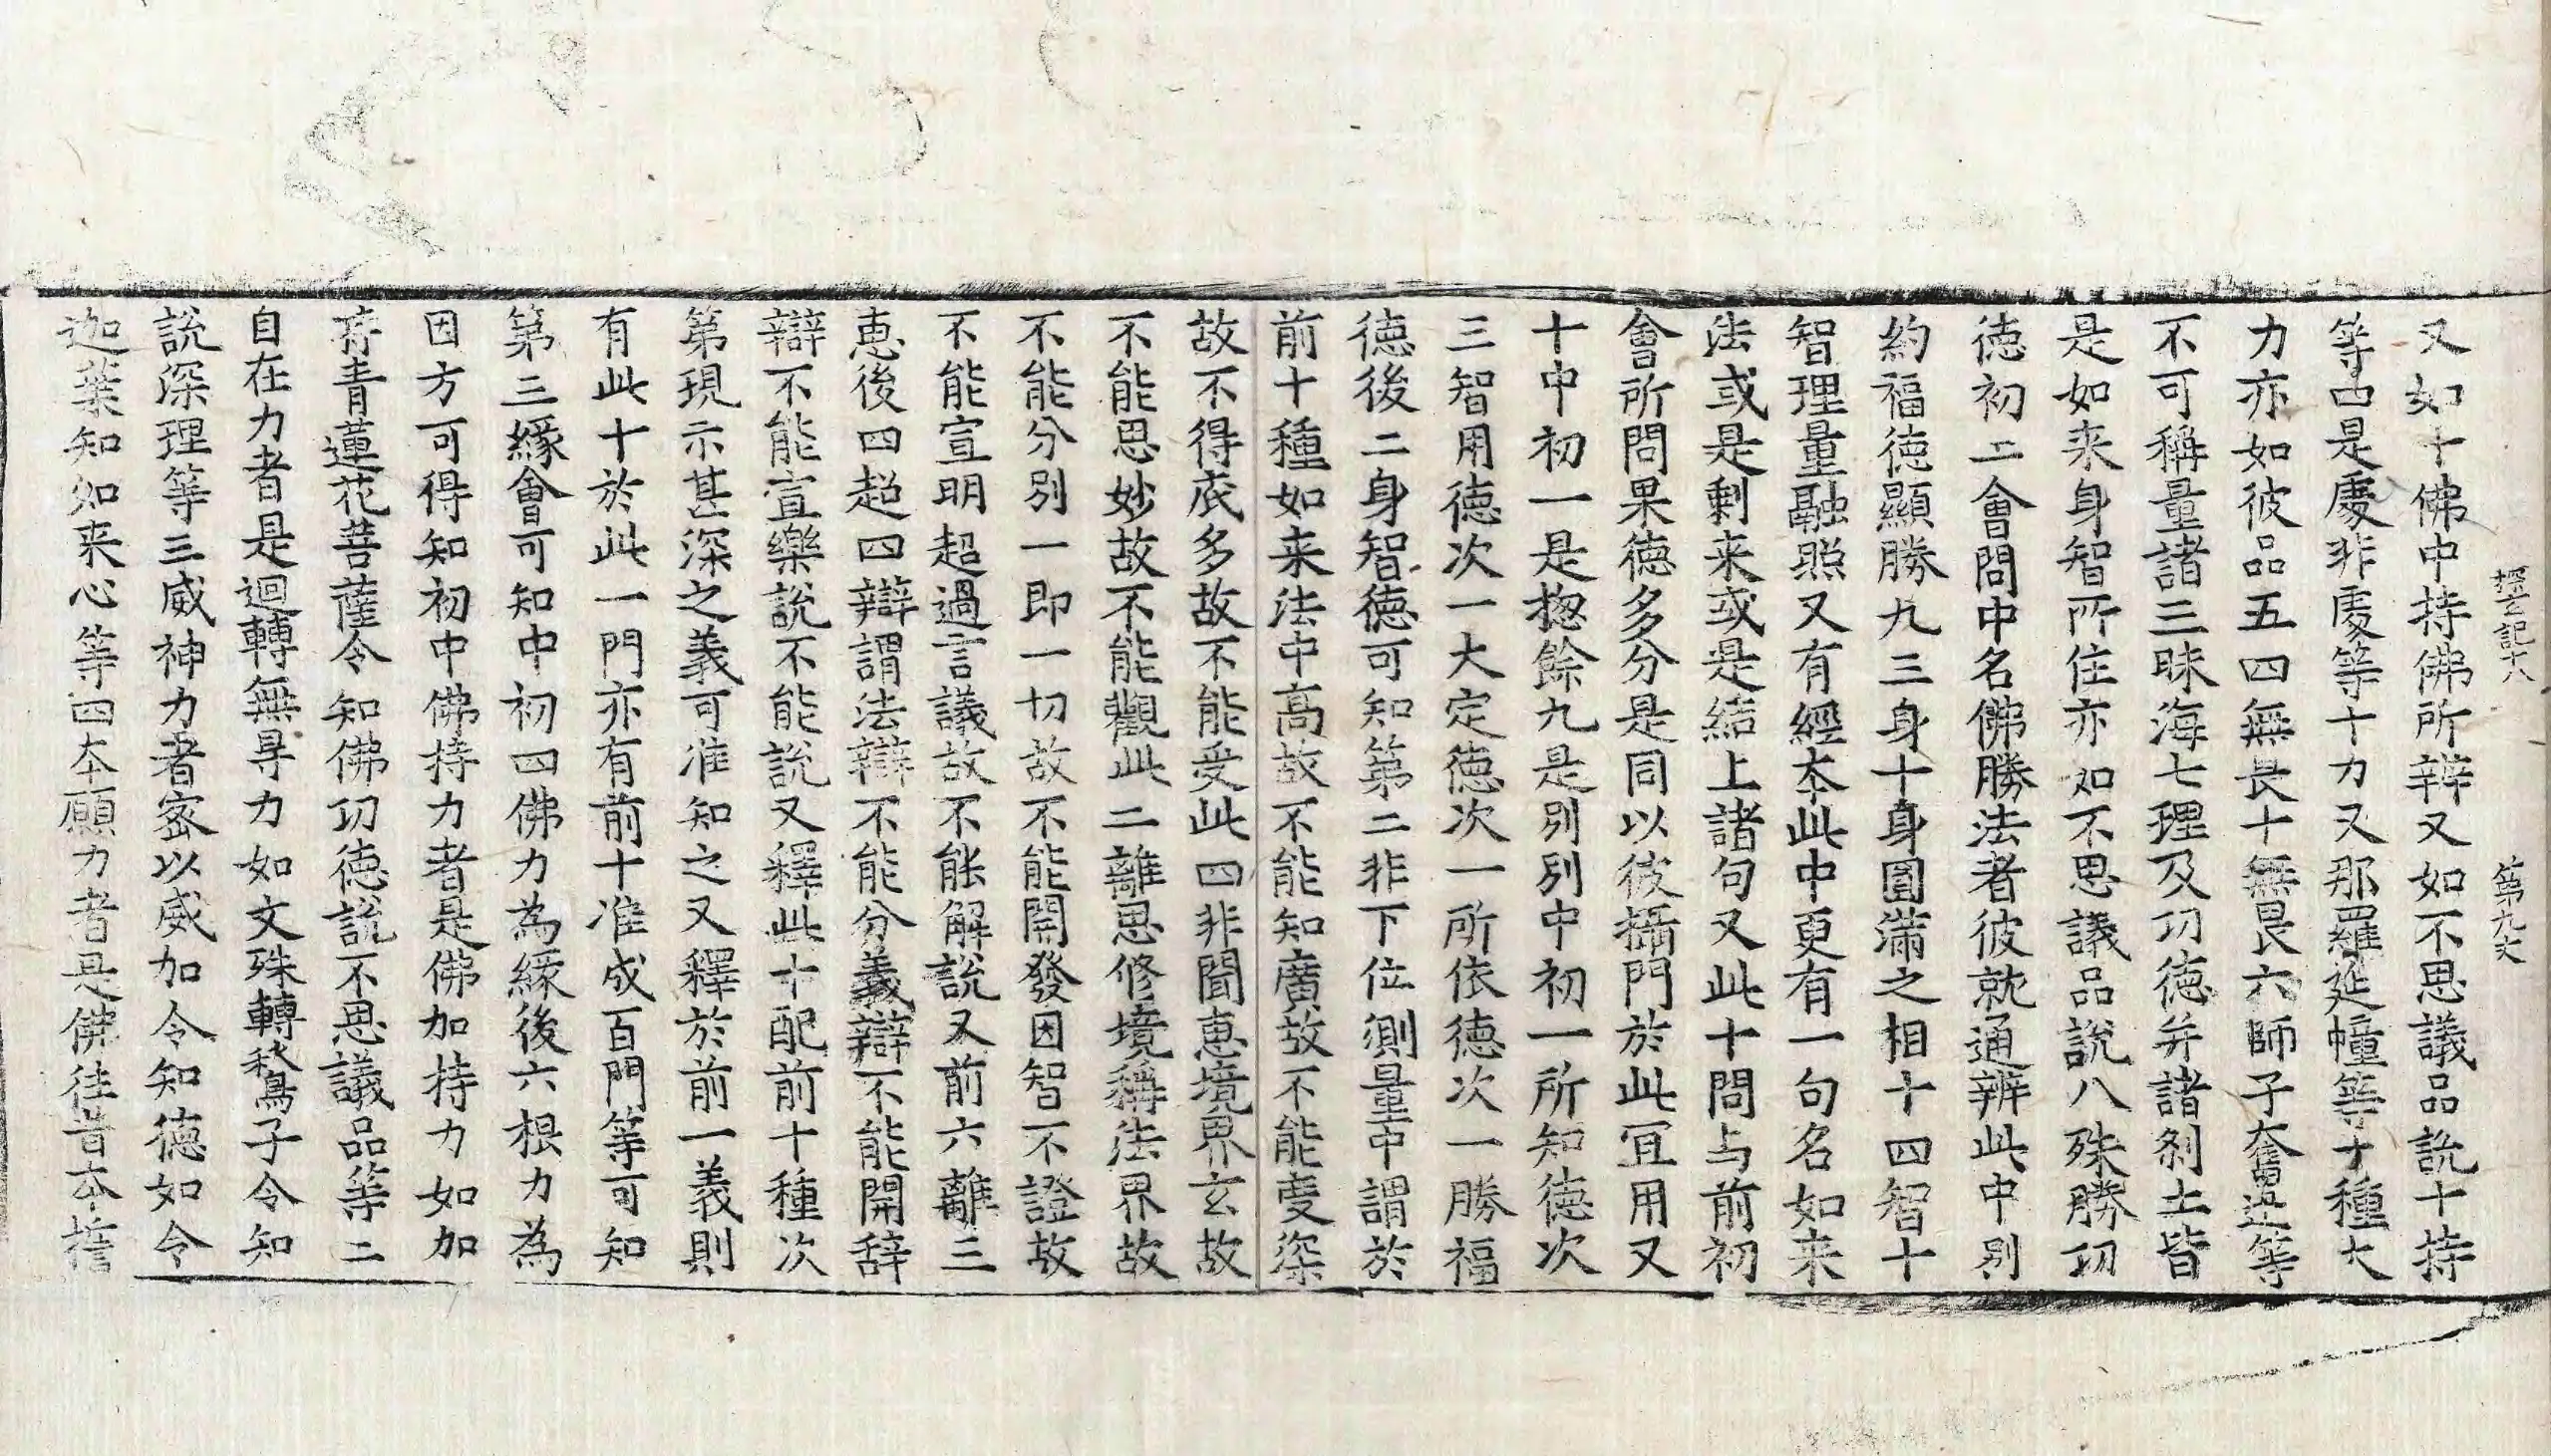 探玄記十八 第九丈
又如十佛中持佛所辨又如不思議品說十持
等四是處非處等十力又那羅延幢等十種大
力亦如彼品五四無畏十無畏六師子奮迅等
不可稱量諸三昧海七理及功德并諸刹土皆
是如来身智所住亦如不思議品說八殊勝功
德初二會問中名佛勝法者彼就通辨此中別
約福德顯勝九三身十身圓滿之相十四智十
智理量融照又有經本此中更有一句名如来
法或是剩来或是結上諸句又此十問与前初
會所問果德多分是同以彼攝門於此冝用又
十中初一是揔餘九是別別中初一所知德次
三智用德次一大定德次一所依德次一勝福
德後二身智德可知第二非下位測量中謂於
前十種如来法中高故不能知廣故不能受深
故不得底多故不能受此四非聞惠境界玄故
不能思妙故不能觀此二離思修境稱法界故
不能分別一即一切故不能開發因智不證故
不能宣明超過言議故不能解說又前六離三
惠後四超四辯謂法辯不能分義辯不能開辞
辯不能宣樂說不能說又釋此十配前十種次
第現示甚深之義可准知之又釋於前一義則
有此十於此一門亦有前十准成百門等可知
第三緣會可知中初四佛力為緣後六根力為
因方可得知初中佛持力者是佛加持力如加
持青蓮花菩薩令知佛功德說不思議品等二
自在力者是迴轉無㝵力如文殊轉鶖子令知
說深理等三威神力者密以威加令知德如令
迦葉知如来心等四本願力者是佛往昔本誓